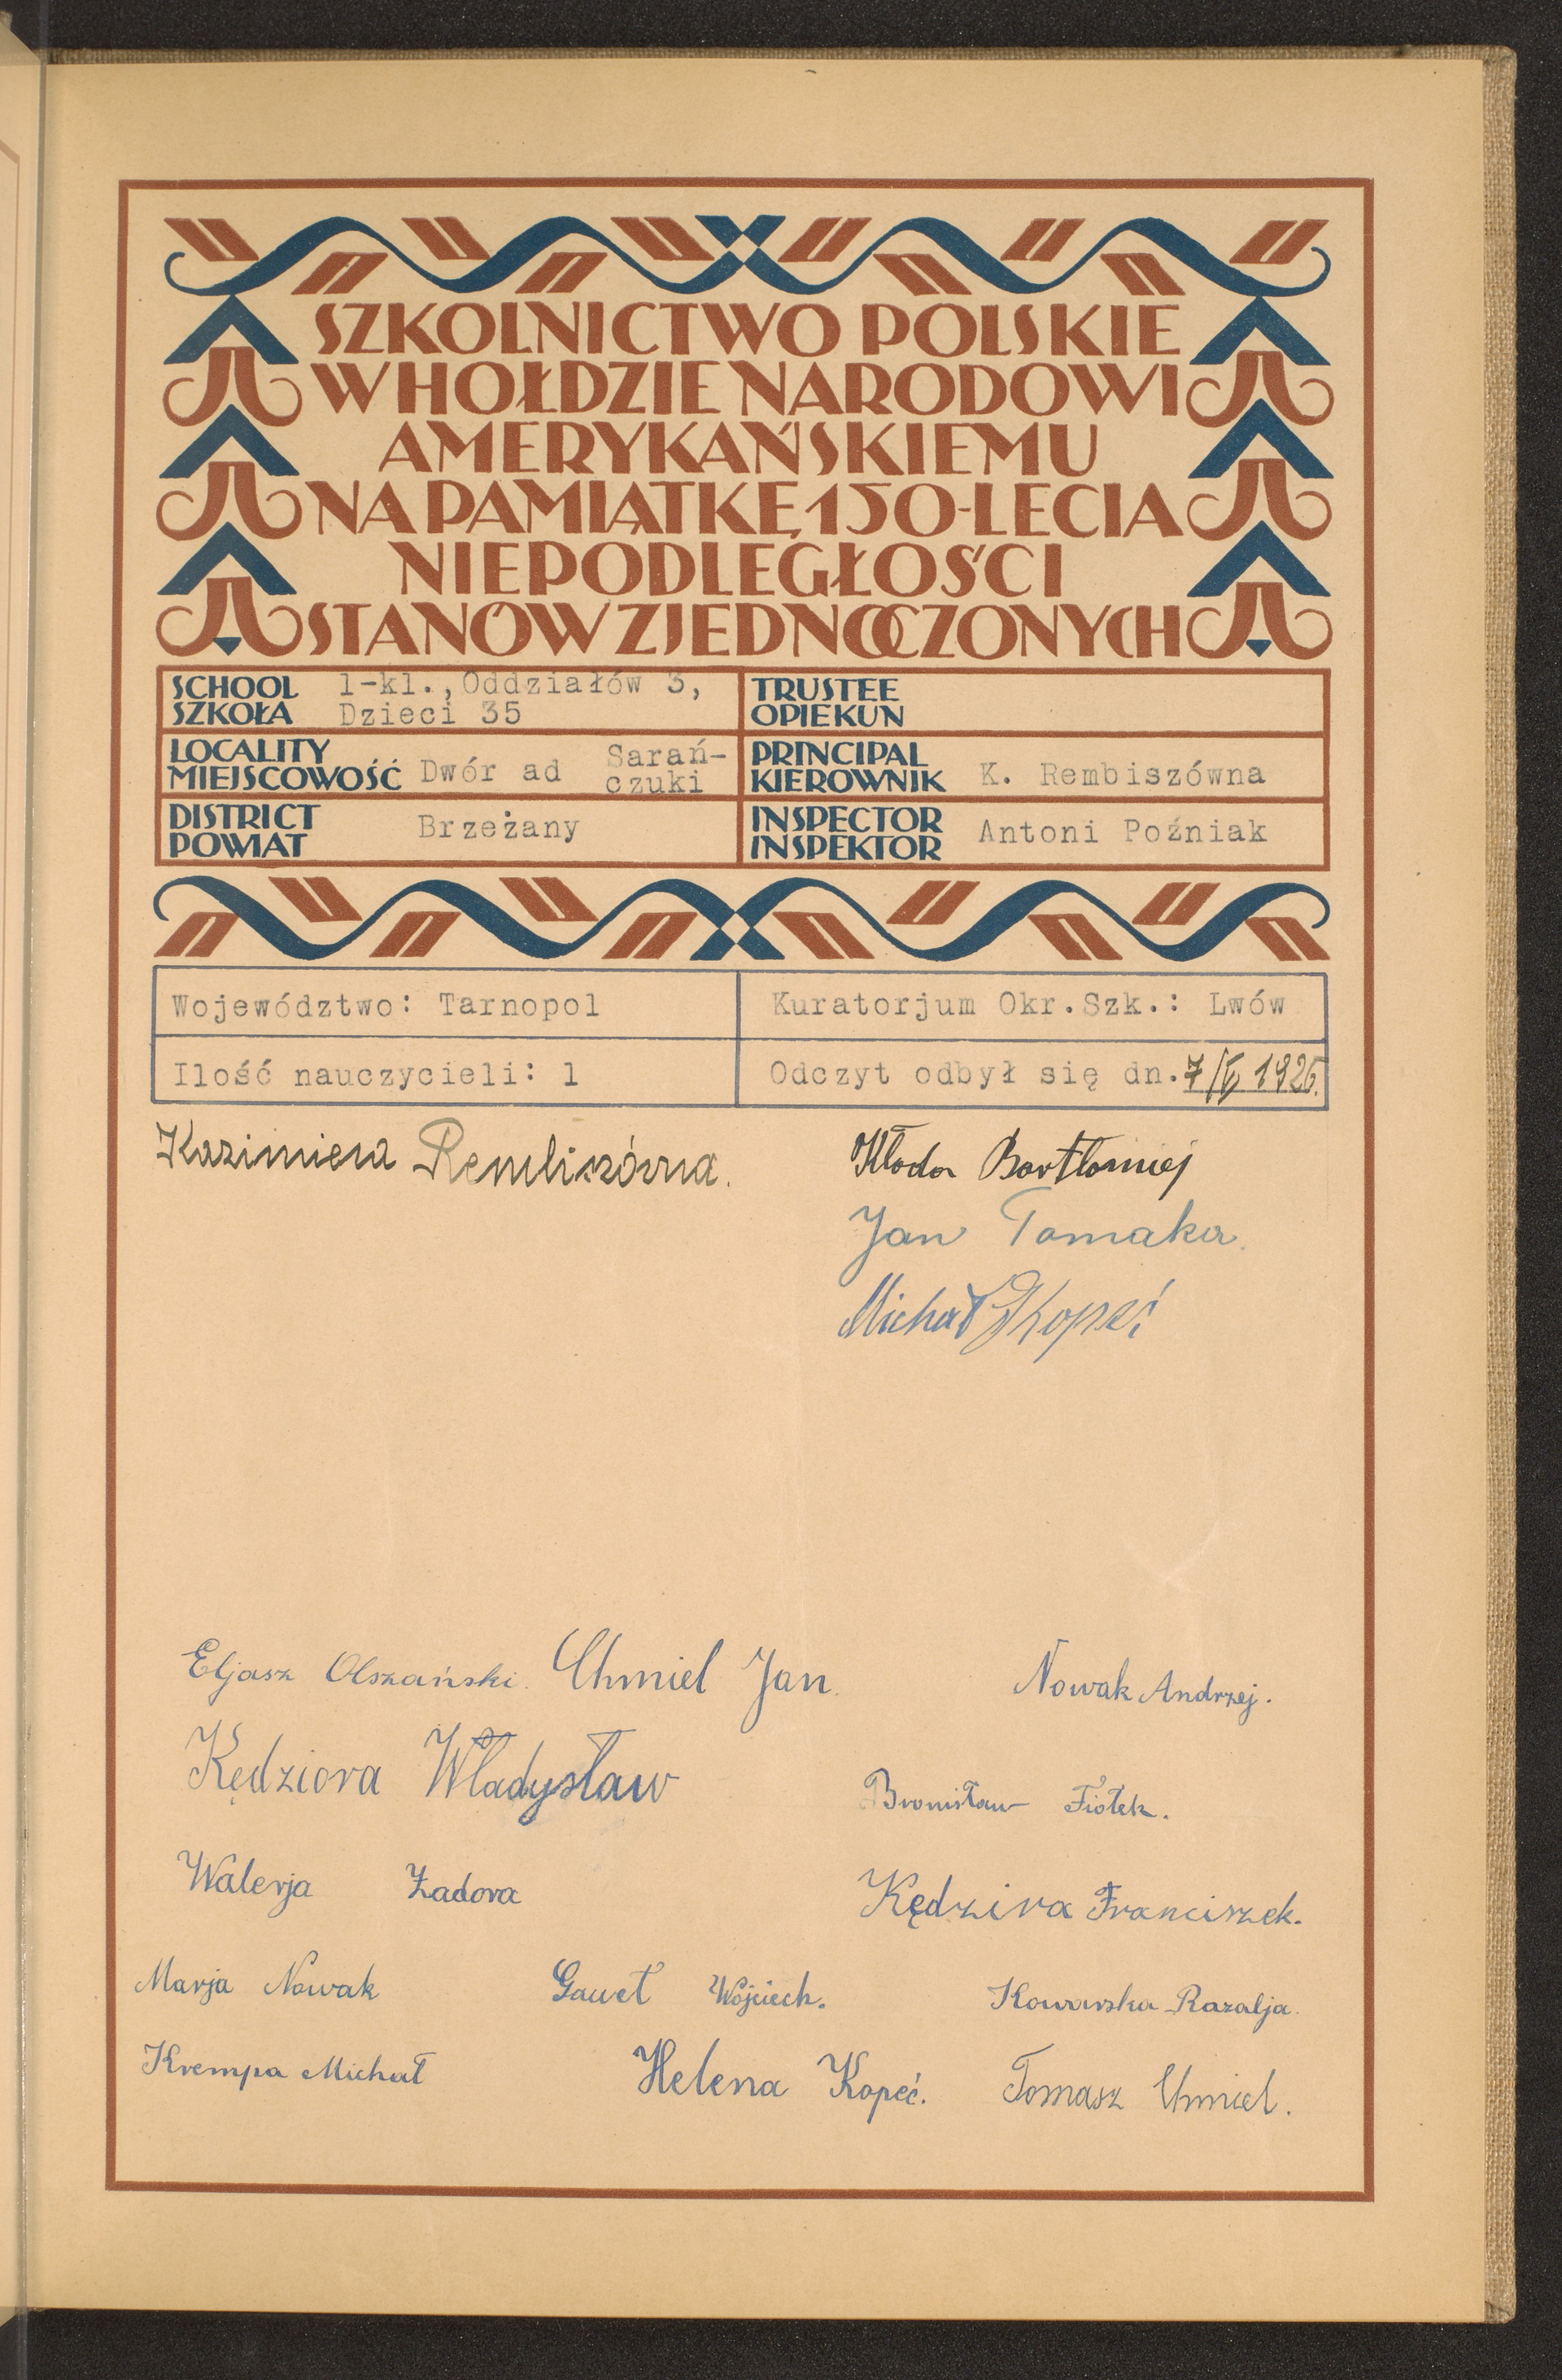 SZKOLNICTWO POLSKIE
W HOŁDZIE NARODOWI
AMERYKAŃSKIEMU
NA PAMIĄTKĘ 150-LECIA
NIEPODLEGŁOŚCI
STANÓW ZJEDNOCZONYCH
SCHOOL SZKOŁA 1-kl., Oddziałów 3, Dzieci 35
TRUSTEE OPIEKUN
LOCALITY MIEJSCOWOŚĆ Dwór ad Sarań-czuki
PRINCIPAL KIEROWNIK K. Rembiszówna
DISTRICT POWIAT Brzeżany
INSPECTOR INSPEKTOR Antoni Poźniak
Województwo: Tarnopol
Kuratorjum Okr.Szk.: Lwów
Ilość nauczycieli: 1
Odczyt odbył się dn. 7/V 1926.
Kazimiera Rembiszówna.
Kłoda Bartłomiej
Jan Tomaka.
Michał Kopeć
Eljasz Olszański. Chmiel Jan. Nowak Andrzej.
Kędziora Władysław
Bronisław Fiołek.
Walerja Żadora
Kędzira Franciszek.
Marja Nowak Gaweł Wojciech. Kowarska Razalja.
Krempa Michał Helena Kopeć. Tomasz Chmiel.